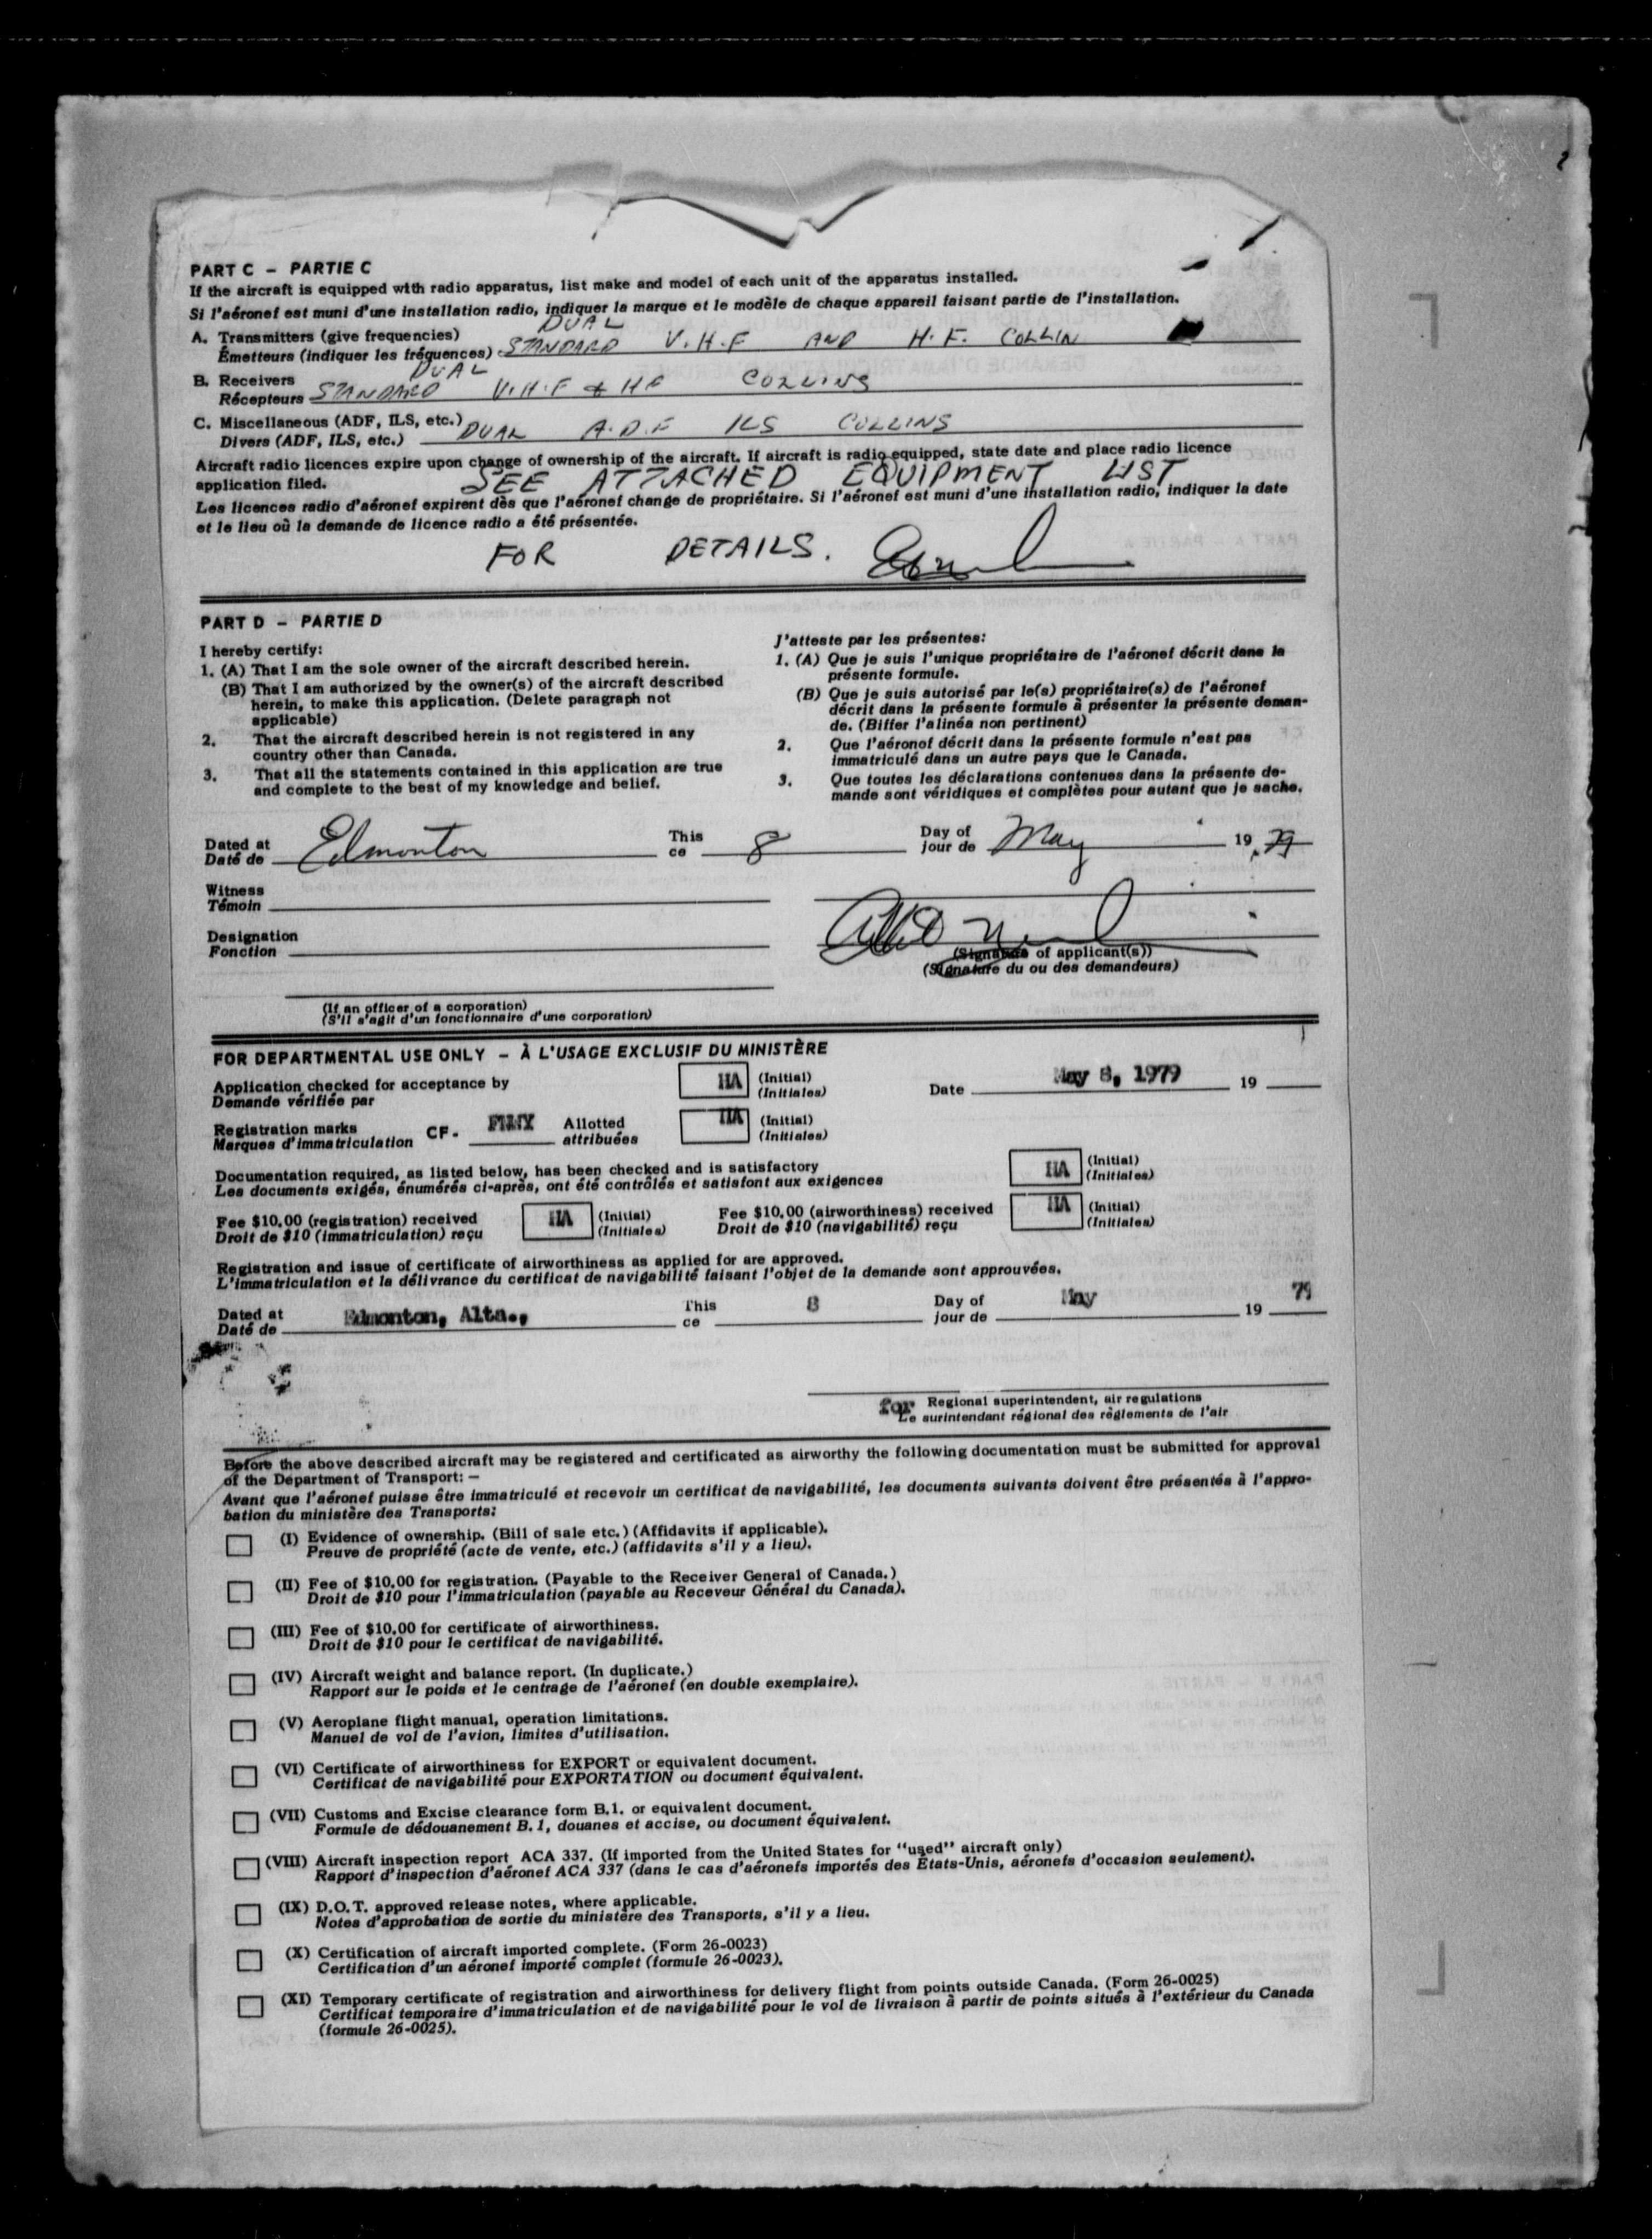 PART C – PARTIE C
If the aircraft is equipped with radio apparatus, list make and model of each unit of the apparatus installed.
Si l'aéronef est muni d'une installation radio, indiquer la marque et le modèle de chaque appareil faisant partie de l'installation.
DUAL
A. Transmitters (give frequencies)
Émetteurs (indiquer les fréquences) STANDARD V.H.F AND H.F. COLLIN
DUAL
B. Receivers
Récepteurs STANDARD V.H.F & HF COLLINS
C. Miscellaneous (ADF, ILS, etc.)
Divers (ADF, ILS, etc.) DUAL A.D.F ILS COLLINS
Aircraft radio licences expire upon change of ownership of the aircraft. If aircraft is radio equipped, state date and place radio licence
application filed. SEE ATTACHED EQUIPMENT LIST
Les licences radio d'aéronef expirent dès que l'aéronef change de propriétaire. Si l'aéronef est muni d'une installation radio, indiquer la date
et le lieu où la demande de licence radio a été présentée.
FOR DETAILS.
PART D – PARTIE D
I hereby certify:
1. (A) That I am the sole owner of the aircraft described herein.
(B) That I am authorized by the owner(s) of the aircraft described
herein, to make this application. (Delete paragraph not
applicable)
2. That the aircraft described herein is not registered in any
country other than Canada.
3. That all the statements contained in this application are true
and complete to the best of my knowledge and belief.
J'atteste par les présentes:
1. (A) Que je suis l'unique propriétaire de l'aéronef décrit dans la
présente formule.
(B) Que je suis autorisé par le(s) propriétaire(s) de l'aéronef
décrit dans la présente formule à présenter la présente deman-
de. (Biffer l'alinéa non pertinent)
2. Que l'aéronef décrit dans la présente formule n'est pas
immatriculé dans un autre pays que le Canada.
3. Que toutes les déclarations contenues dans la présente de-
mande sont véridiques et complètes pour autant que je sache.
Dated at This Day of
Daté de Edmonton ce 8 jour de May 19 79
Witness
Témoin
Designation
Fonction
(Signature of applicant(s))
(Signature du ou des demandeurs)
(If an officer of a corporation)
(S'il s'agit d'un fonctionnaire d'une corporation)
FOR DEPARTMENTAL USE ONLY – À L'USAGE EXCLUSIF DU MINISTÈRE
Application checked for acceptance by (Initial) Date May 8, 1979 19
Demande vérifiée par (Initiales)
Registration marks CF- Allotted (Initial)
Marques d'immatriculation attribuées (Initiales)
Documentation required, as listed below, has been checked and is satisfactory (Initial)
Les documents exigés, énumérés ci-après, ont été contrôlés et satisfont aux exigences (Initiales)
Fee $10.00 (registration) received (Initial) Fee $10.00 (airworthiness) received (Initial)
Droit de $10 (immatriculation) reçu (Initiales) Droit de $10 (navigabilité) reçu (Initiales)
Registration and issue of certificate of airworthiness as applied for are approved.
L'immatriculation et la délivrance du certificat de navigabilité faisant l'objet de la demande sont approuvées.
Dated at This Day of
Daté de Edmonton, Alta., ce 8 jour de May 19 79
for Regional superintendent, air regulations
Le surintendant régional des règlements de l'air
Before the above described aircraft may be registered and certificated as airworthy the following documentation must be submitted for approval
of the Department of Transport: –
Avant que l'aéronef puisse être immatriculé et recevoir un certificat de navigabilité, les documents suivants doivent être présentés à l'appro-
bation du ministère des Transports:
(I) Evidence of ownership. (Bill of sale etc.) (Affidavits if applicable).
Preuve de propriété (acte de vente, etc.) (affidavits s'il y a lieu).
(II) Fee of $10.00 for registration. (Payable to the Receiver General of Canada.)
Droit de $10 pour l'immatriculation (payable au Receveur Général du Canada).
(III) Fee of $10.00 for certificate of airworthiness.
Droit de $10 pour le certificat de navigabilité.
(IV) Aircraft weight and balance report. (In duplicate.)
Rapport sur le poids et le centrage de l'aéronef (en double exemplaire).
(V) Aeroplane flight manual, operation limitations.
Manuel de vol de l'avion, limites d'utilisation.
(VI) Certificate of airworthiness for EXPORT or equivalent document.
Certificat de navigabilité pour EXPORTATION ou document équivalent.
(VII) Customs and Excise clearance form B.1. or equivalent document.
Formule de dédouanement B.1, douanes et accise, ou document équivalent.
(VIII) Aircraft inspection report ACA 337. (If imported from the United States for "used" aircraft only)
Rapport d'inspection d'aéronef ACA 337 (dans le cas d'aéronefs importés des États-Unis, aéronefs d'occasion seulement).
(IX) D.O.T. approved release notes, where applicable.
Notes d'approbation de sortie du ministère des Transports, s'il y a lieu.
(X) Certification of aircraft imported complete. (Form 26-0023)
Certification d'un aéronef importé complet (formule 26-0023).
(XI) Temporary certificate of registration and airworthiness for delivery flight from points outside Canada. (Form 26-0025)
Certificat temporaire d'immatriculation et de navigabilité pour le vol de livraison à partir de points situés à l'extérieur du Canada
(formule 26-0025).